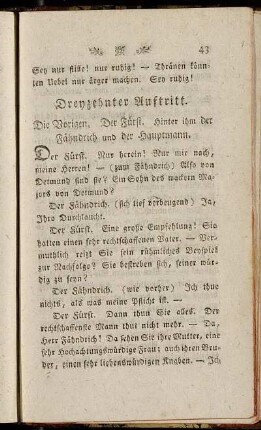 43
Sey nur stille! nur ruhig! — Thränen kön-
nen Uebel nur ärger machen. Sey ruhig!
Dreyzehnter Auftritt.
Die Vorigen. Der Fürst. Hinter ihm der
Fähndrich und der Hauptmann.
Der Fürst. Nur herein! Nur mir nach,
meine Herren! — (zum Fähndrich) Also von
Detmund sind sie? Ein Sohn des wackern Ma-
jors von Detmund?
Der Fähndrich. (sich tief verbeugend) Ja,
Ihro Durchlaucht.
Der Fürst. Eine große Empfehlung! Sie
hatten einen sehr rechtschaffenen Vater. — Ver-
muthlich reizt Sie sein rühmliches Beyspiel
zur Nachfolge? Sie bestreben sich, seiner wür-
dig zu seyn?
Der Fähndrich. (wie vorher) Ich thue
nichts, als was meine Pflicht ist. —
Der Fürst. Dann thun Sie alles. Der
rechtschaffenste Mann thut nicht mehr. — Da,
Herr Fähndrich! Da sehen Sie ihre Mutter, eine
sehr Hochachtungswürdige Frau; auch ihren Bru-
der, einen sehr liebenswürdigen Knaben. — Ich